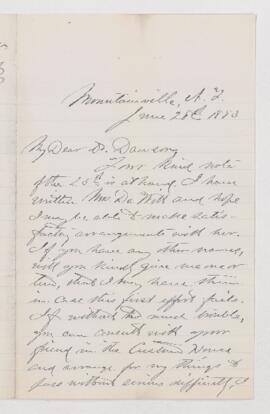 Mountainville, N.Y.
June 28th 1883
My Dear Dr. Dawson,
Your kind note
of the 25th is at hand. I have
written Mrs De Witt and hope
I may be able to make satis-
factory arrangements with her.
If you have any other names,
will you kindly give me one or
two, that I may have them
in case this first effort fails.
If without too much trouble,
you can consult with your
friend in the Custom House
and arrange for my things to
pass without serious difficulty, I